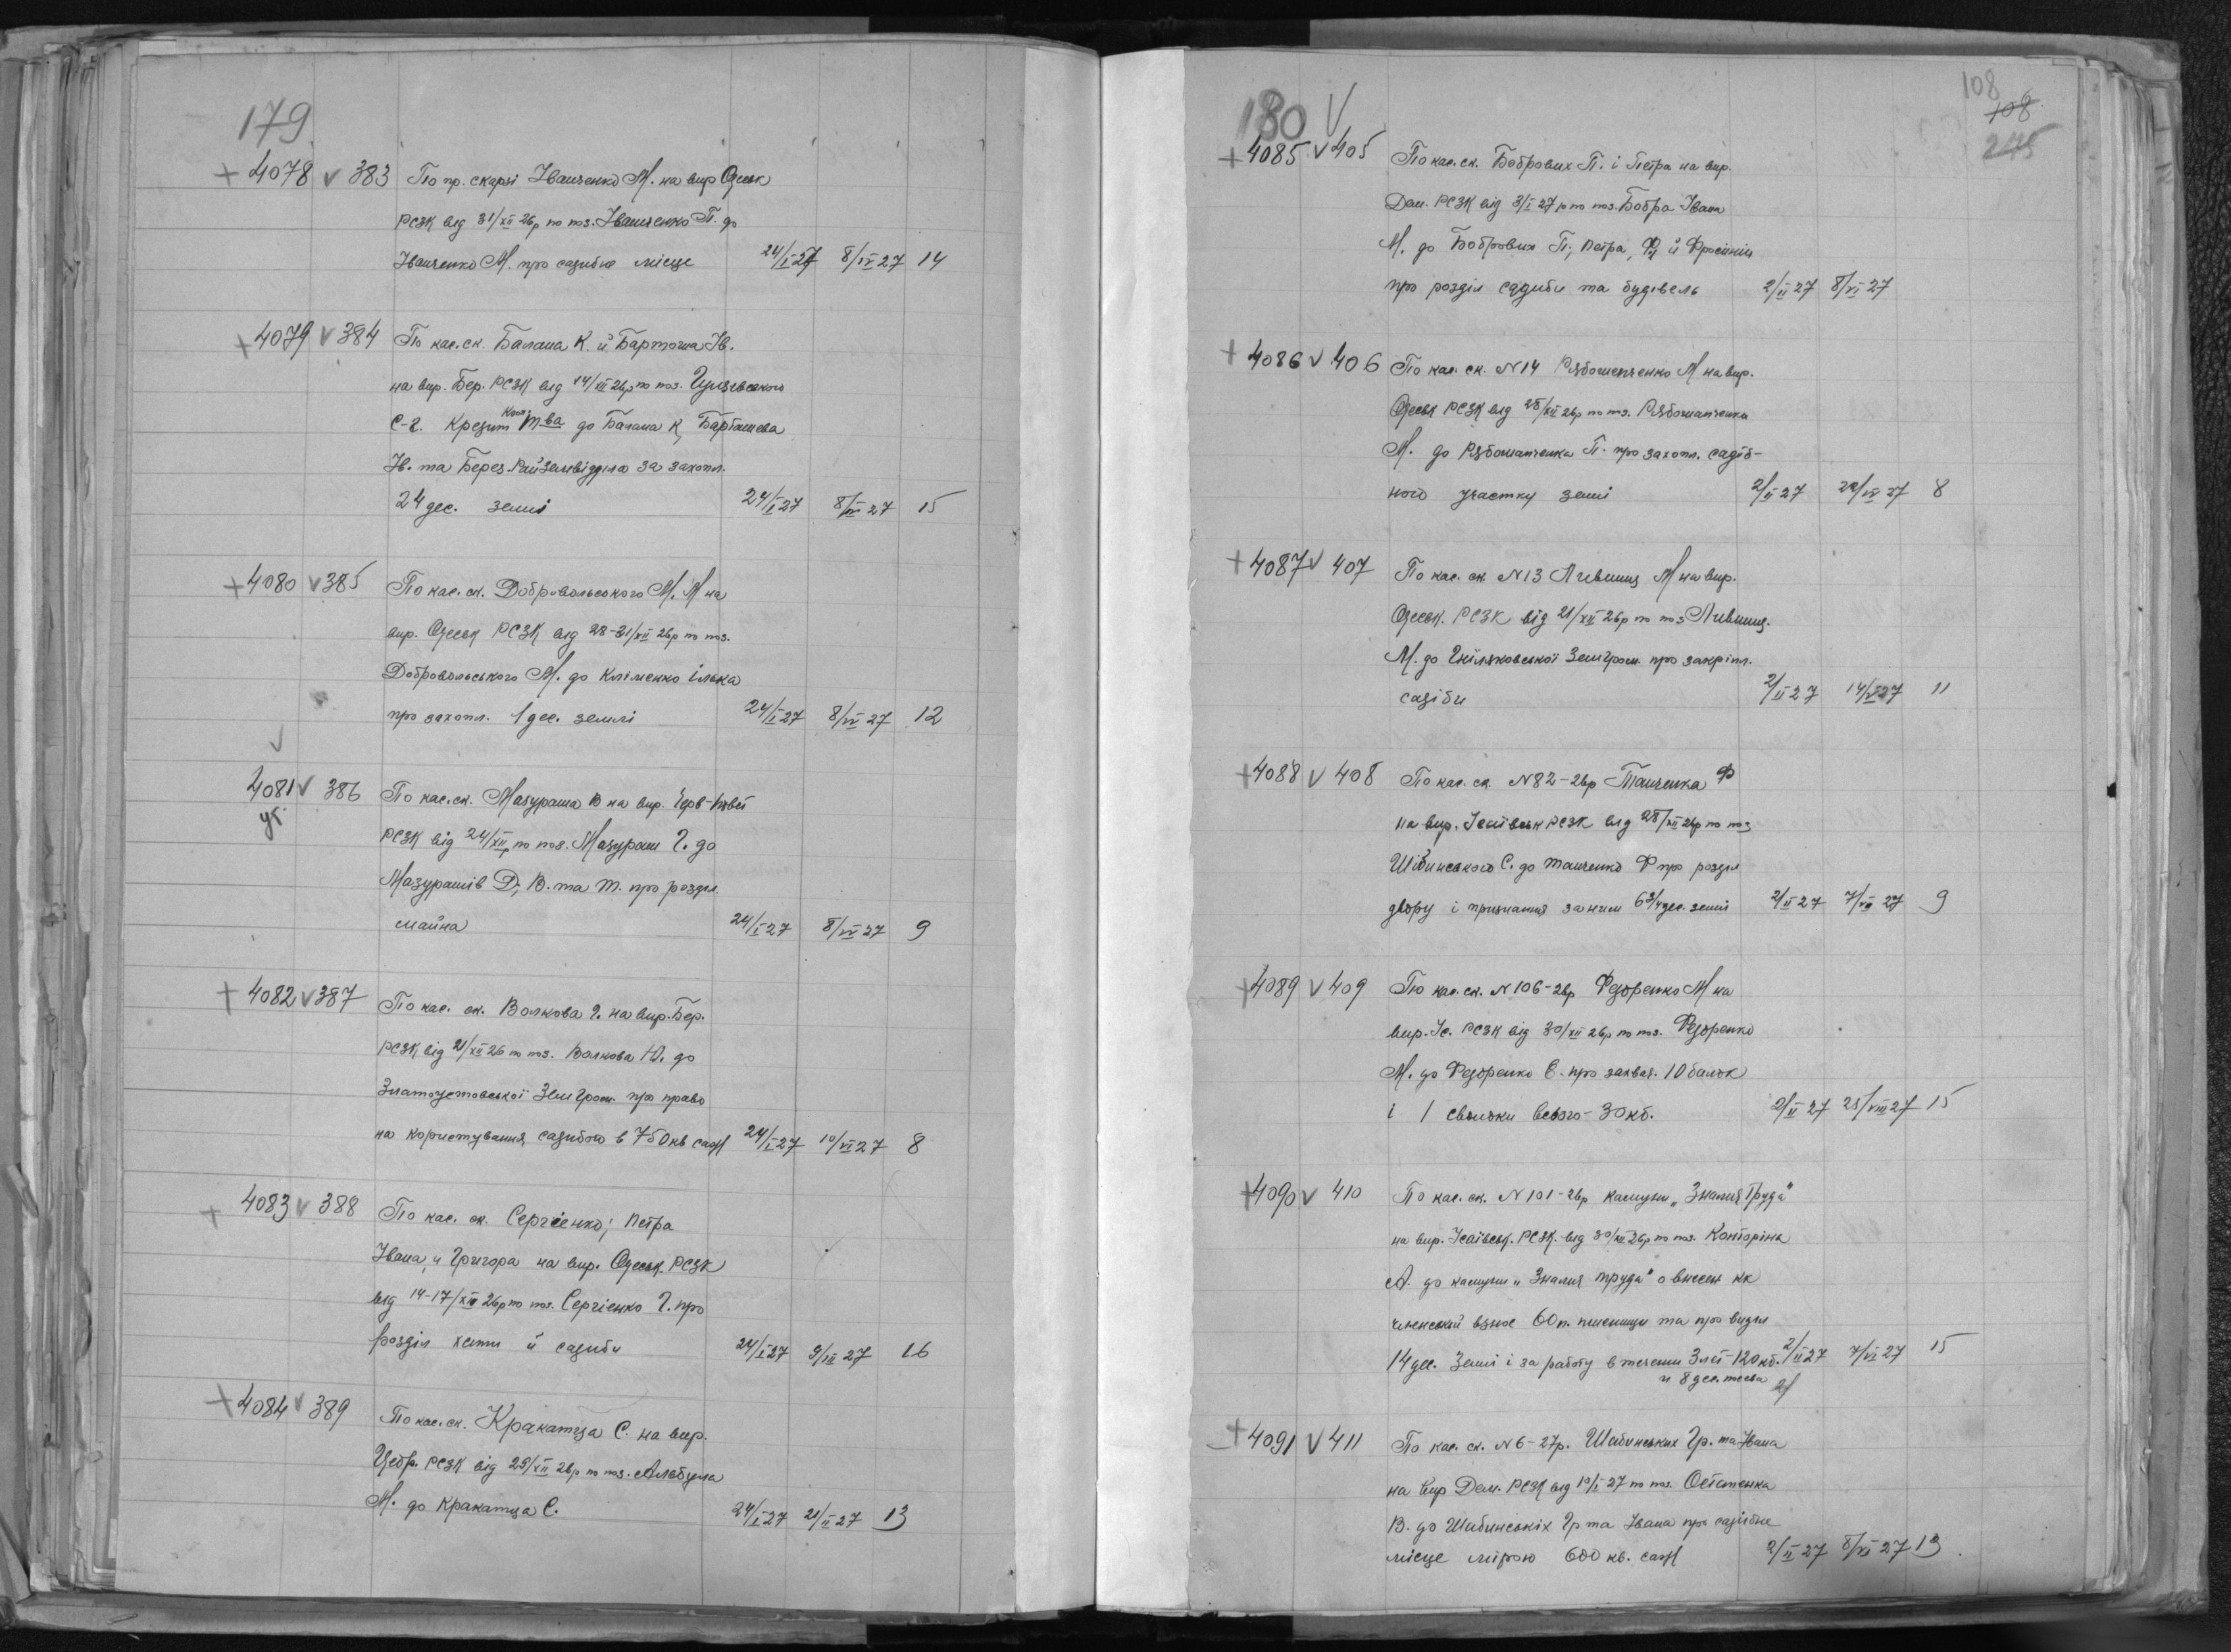 179
+ 4078 v 383 По пр. скарзі Іванченко М. на вир Одеськ
РСЗК від 31/XII 26р по поз. Іванченко П. до
Іванченко М. про садибне місце 24/I 27 8/IV 27 14
+ 4079 v 384 По кас. ск. Балана К. й Бартоша Ів.
на вир. Бер. РСЗК від 14/XII 26р по поз.
С-г. Кредит Т-ва до Балана К,
Ів. та Берез. Райземвідділа за захопл.
24 дес. землі 24/I 27 8/IV 27 15
+ 4080 v 385 По кас. ск. Добровольського М. М на
вир. Одеськ РСЗК від 28-31/XII 26р по поз.
Добровольського М. до Кліменко Ілька
про захопл. 1 дес. землі 24/I 27 8/IV 27 12
v
4081 v 386 По кас. ск. Мазураша В на вир.
РСЗК від 24/XII по поз. Мазураш Г. до
Мазурашів Д, В. та Т. про розділ
майна 24/I 27 8/IV 27 9
+ 4082 v 387 По кас. ск. Волкова Г. на вир. Бер.
РСЗК від 21/XII 26 по поз. Волкова Ю. до
Златоустовської Земгром. про право
на користування садибою в 750 кв саж 24/I 27 10/VI 27 8
+ 4083 v 388 По кас. ск. Сергієнко; Петра
Івана, и Григора на вир. Одеськ. РСЗК
від 14-17/XII 26р по поз. Сергієнко Г. про
розділ хати й садиби 24/I 27 9/III 27 16
+ 4084 v 389 По кас. ск. Кракатиза С. на вир.
Цебр. РСЗК від 29/XII 26р по поз.
М. до Кракатиза С. 24/I 27 21/II 27 13
180 V
108
108
275
+ 4085 v 405 По кас. ск. Бобрових П. і Петра на вир.
Дем. РСЗК від 3/I 27 р по поз. Бобра Івана
М. до Бобрових П; Петра,
про розділ садиби та будівель 2/II 27 8/VI 27
+ 4086 v 406 По кас. ск. N 14 Рябошапченко М на вир.
Одеськ РСЗК від 28/XII 26р по поз. Рябошапченка
М. до Рябошапченка П. про захопл. садіб-
ного участку землі 2/II 27 8
+ 4087 v 407 По кас. ск N 13 М на вир.
Одеськ. РСЗК від 21/XII 26р по поз
М. до Гніляковської Земгром. про закріпл.
садіби 2/II 27 11
+ 4088 v 408 По кас. ск. N 82-26р Танченка Ф
на вир. Ісаївськ РСЗК від 28/XII 26р по поз
Шибинського С. до Танченко Ф про розділ
двору і признання за ним 6 3/4 дес. землі 2/II 27 9
+ 4089 v 409 По кас. ск. N 106-26р Федоренко М на
вир. Іс. РСЗК від 30/XII 26р по поз. Федоренко
М. до Федоренко Є. про захват. 10 балок
і 1 всього - 30 кб. 2/II 27 25/VIII 27 15
+ 4090 v 410 По кас. ск. N 101-26р камуни „Знамя Труда"
на вир. Ісаївськ. РСЗК. від 30/XII 26р по поз. Конторіна
А. до камуни „Знамя труда" о внесен як
членський взнос 60 п. пшениці та про виділ
14 дес. Землі і за работу в течении 3 літ - 120 кб. 2/II 27 7/VI 27 15
и 8 дес.
+ 4091 v 411 По кас. ск. N 6-27р. Шибинських Гр. та Івана
на вир Дем. РСЗК від 10/I 27 по поз. Остапенка
В. до Шибинськіх Гр та Івана про садібне
місце мірою 600 кв. саж 2/II 27 8/VI 27 13